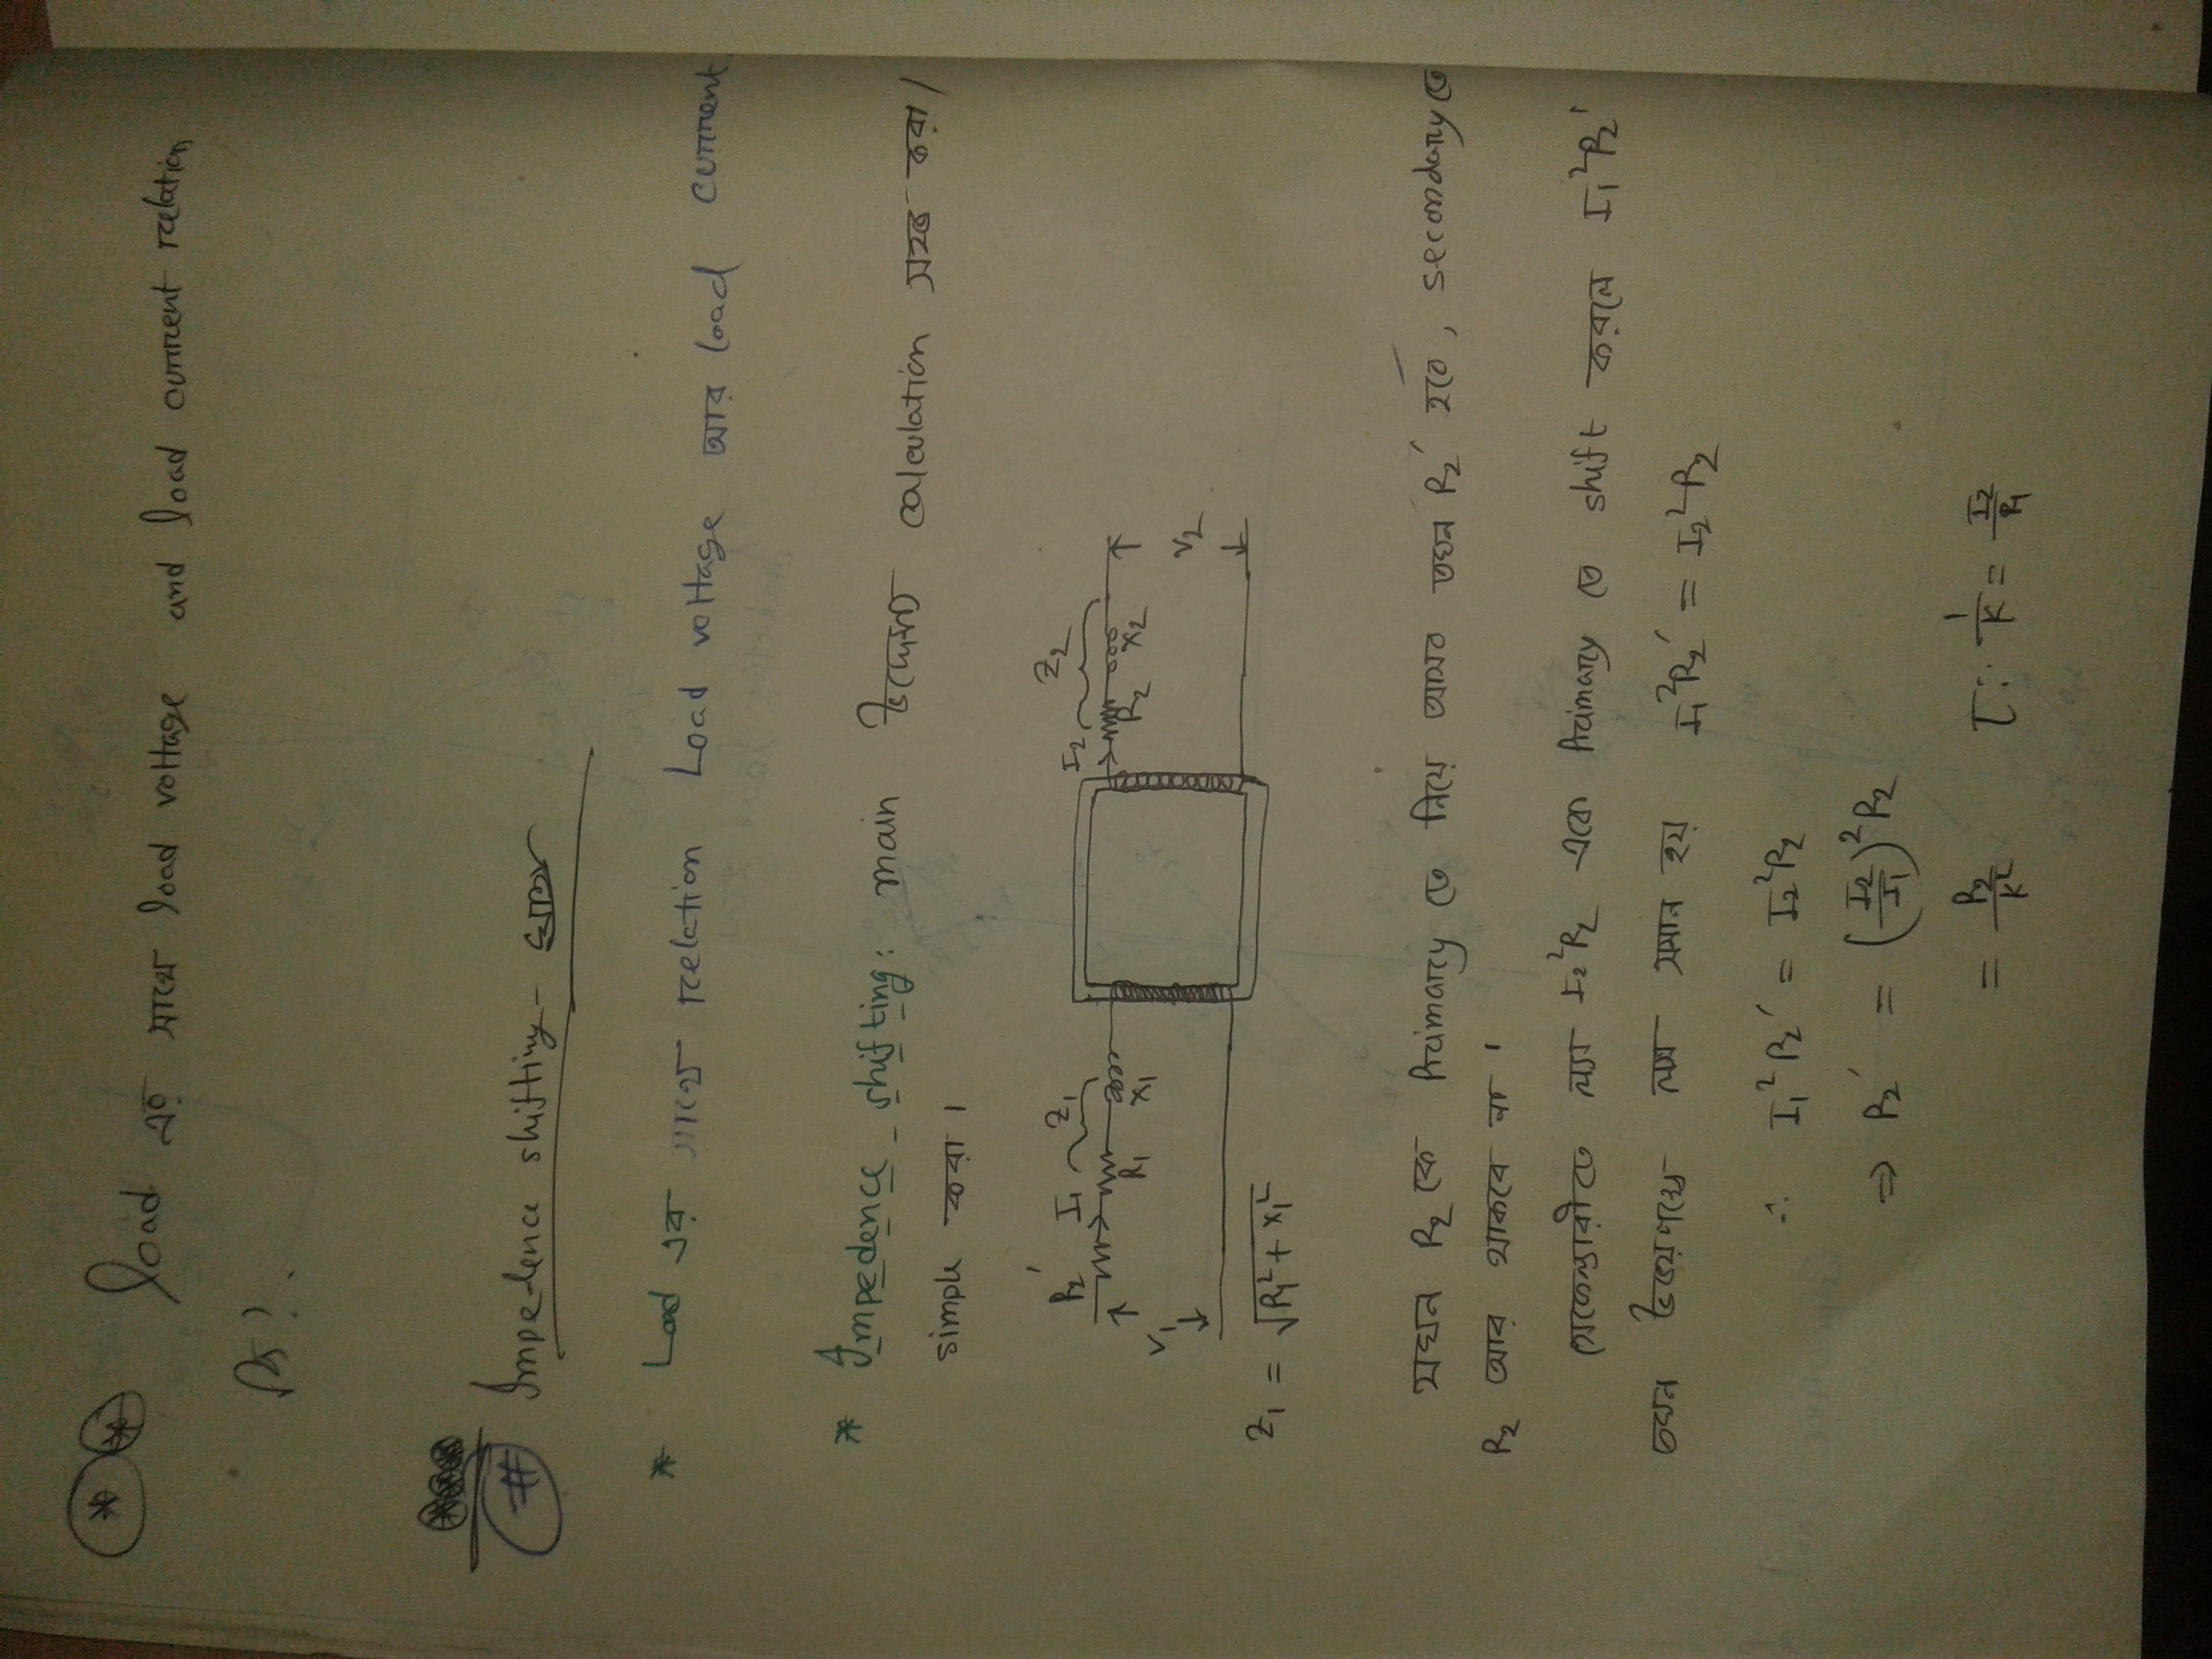 ** load এর সাথে load voltage and load current relation
কি?
# Impedence shifting-
* Load এর সাথে relation Load voltage আর load current
* Impedence shifting: main উদ্দেশ্য calculation সহজ করা/
simple করা।
R₂' I₁ Z₁ I₂ Z₂
R₁ X₁ R₂ X₂
V₁ V₂
Z₁ = √R₁² + X₁²
যখন R₂ কে Primary তে নিয়ে আসব তখন R₂' হবে, secondary তে
R₂ আর থাকবে না।
সেকেন্ডারীতে লস I₂²R₂ একে Primary তে shift করলে I₁²R₂'
তখন উভয়পক্ষে লস সমান হয় I₁²R₂' = I₂²R₂
∴ I₁²R₂' = I₂²R₂
⇒ R₂' = (I₂/I₁)²R₂
= R₂/K² [∵ 1/K = I₂/I₁